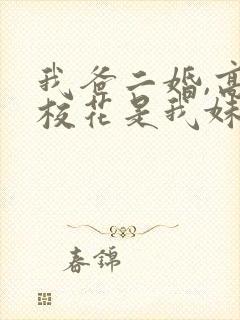 我爸二婚,高
校花是我妹
春锦